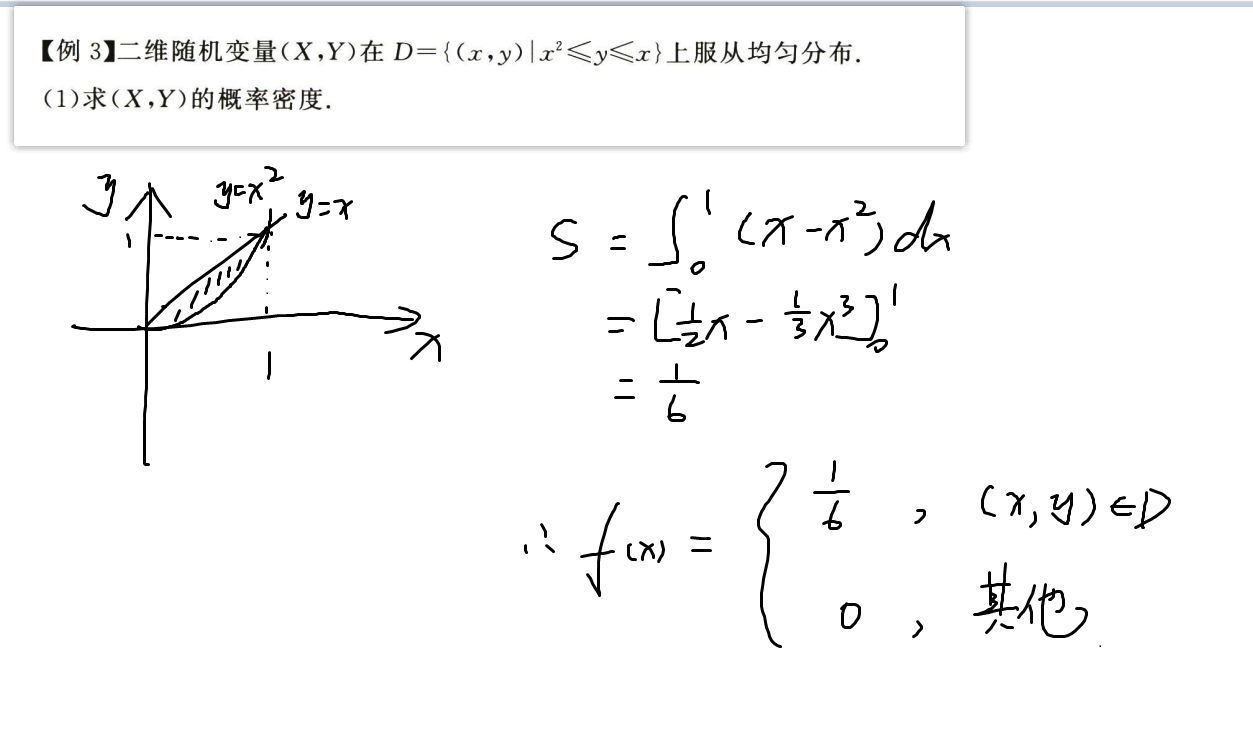 【例 3】二维随机变量(X,Y)在 D={(x,y)|x²≤y≤x}上服从均匀分布.
(1)求(X,Y)的概率密度.
y
y=x²
y=x
1
x
1
S = ∫₀¹ (x-x²) dx
= [1/2x - 1/3x³]₀¹
= 1/6
∴ f(x) = { 1/6 , (x,y)∈D
0 , 其他